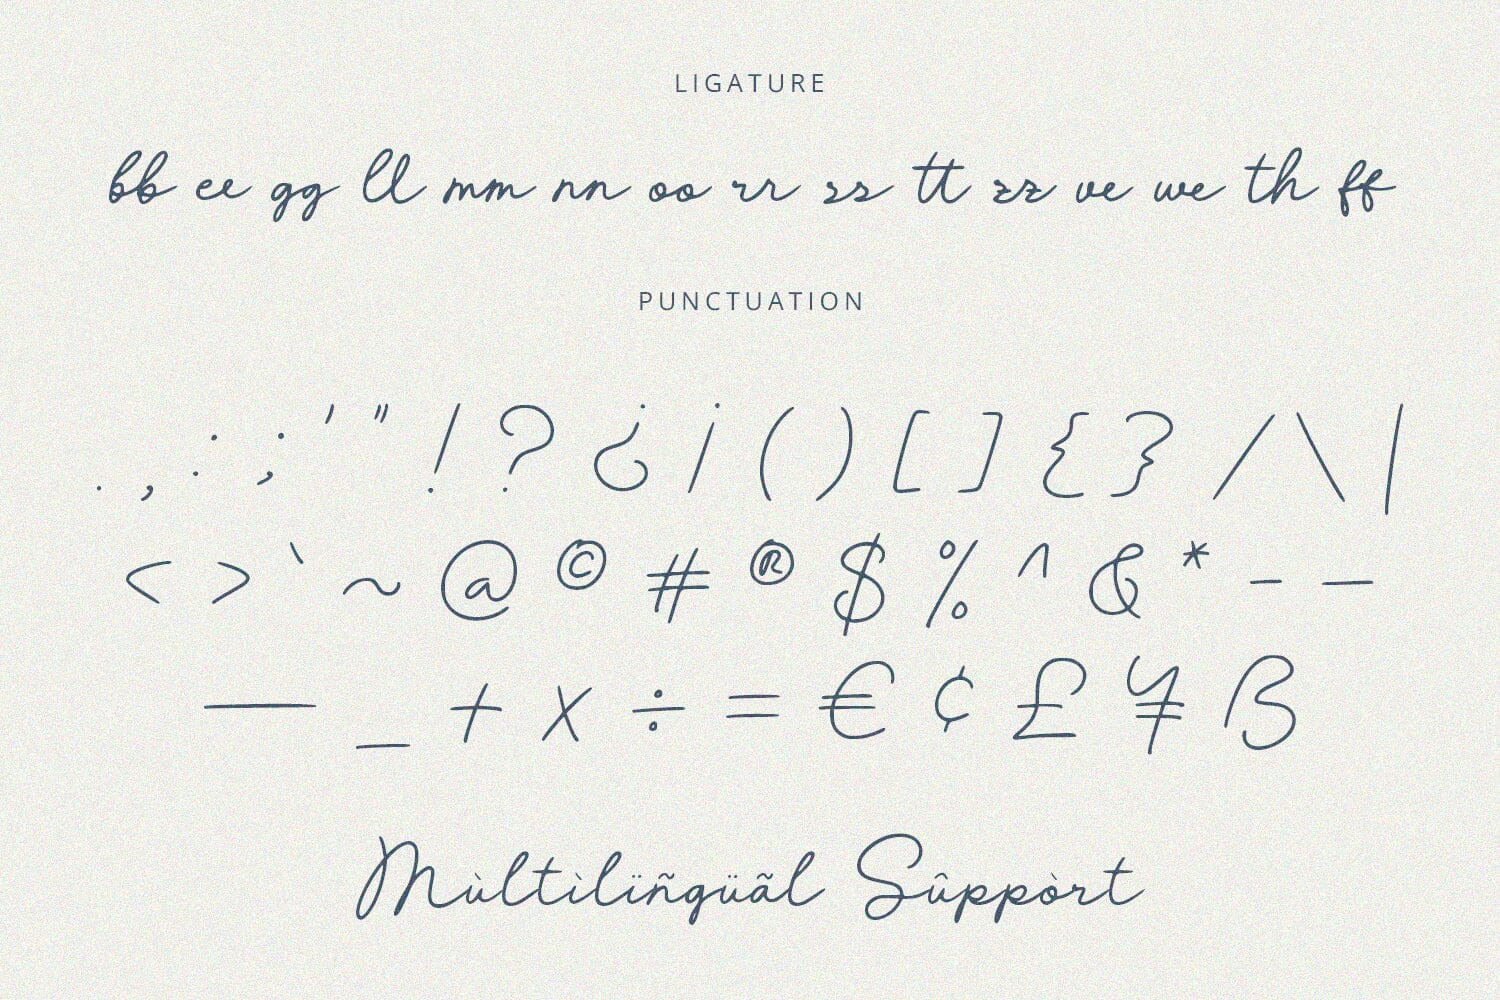 LIGATURE
bb ee gg ll mm nn oo rr ss tt zz ve we th ff
PUNCTUATION
. , : ; ' " ! ? ¿ ¡ ( ) [ ] { } / \ |
< > ` ~ @ © # ® $ % ^ & * - –
— _ + × ÷ = € ¢ £ ¥ ß
Mùltìlïñgüãl Sûppòrt